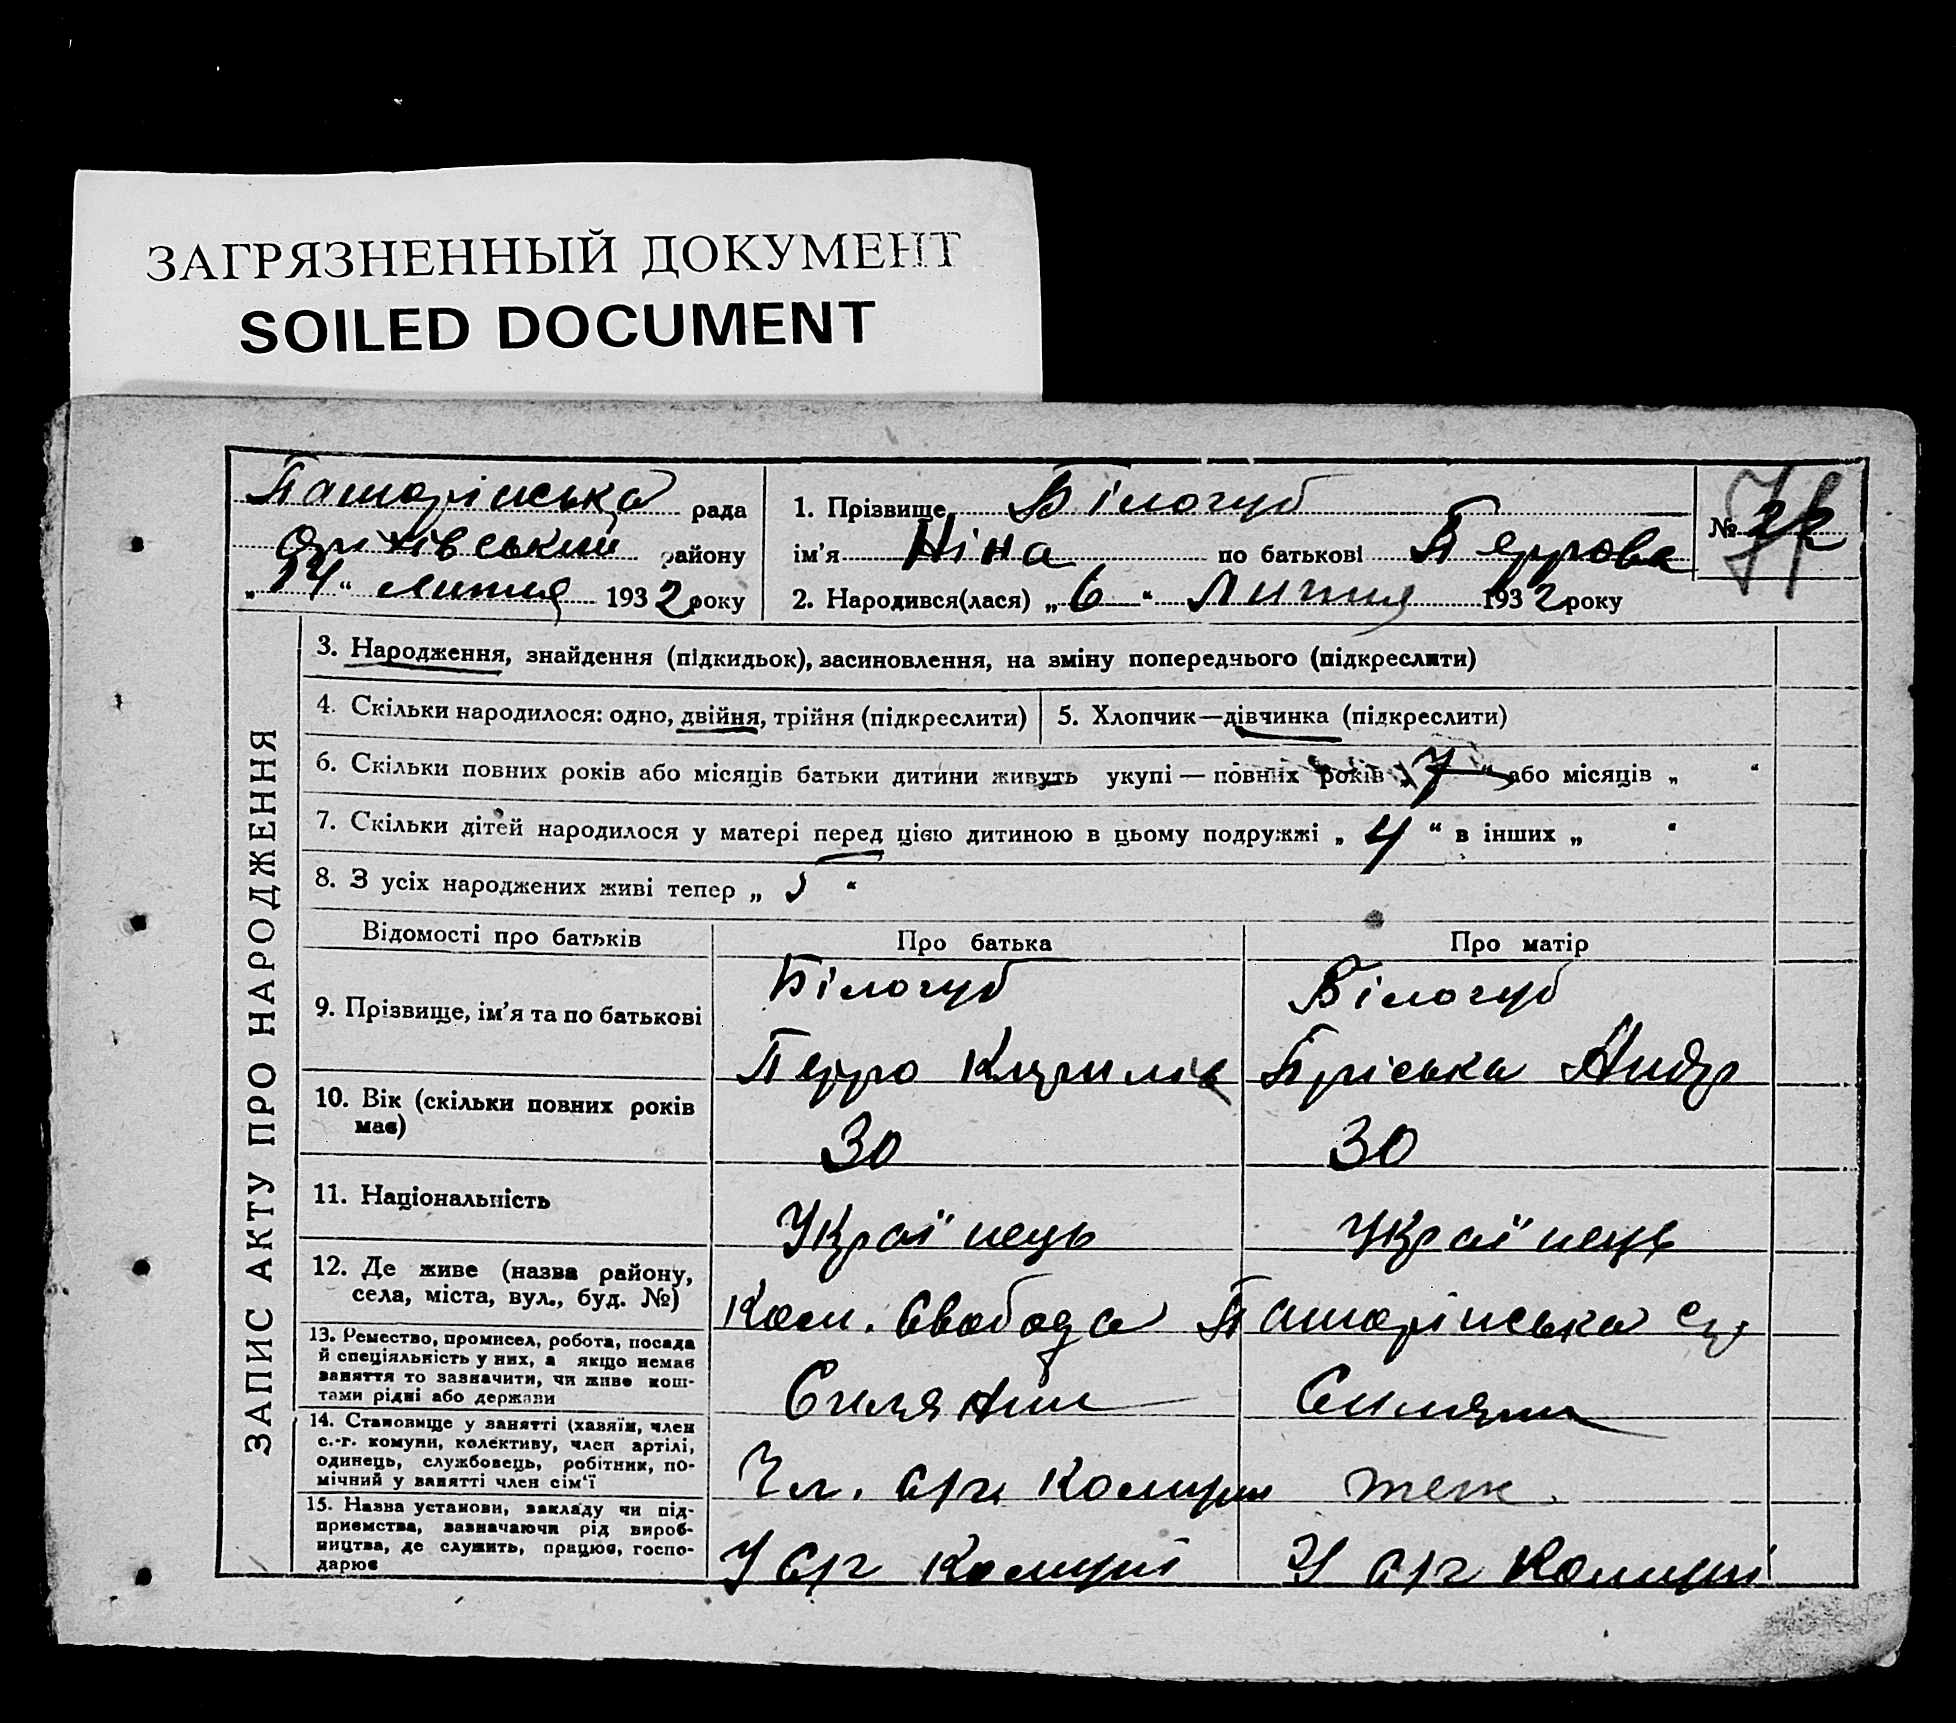 ЗАГРЯЗНЕННЫЙ ДОКУМЕНТ
SOILED DOCUMENT
рада
району
„14“ липня 1932 року
1. Прізвище Білогуб
ім'я Ніна по батькові Петрова
2. Народився(лася) „6“ Липня 1932 року
№
ЗАПИС АКТУ ПРО НАРОДЖЕННЯ
3. Народження, знайдення (підкидьок), засиновлення, на зміну попереднього (підкреслити)
4. Скільки народилося: одно, двійня, трійня (підкреслити)
5. Хлопчик—дівчинка (підкреслити)
6. Скільки повних років або місяців батьки дитини живуть укупі — повних років „7“ або місяців „ “
7. Скільки дітей народилося у матері перед цією дитиною в цьому подружжі „4“ в інших „ “
8. З усіх народжених живі тепер „ “
Відомості про батьків Про батька Про матір
9. Прізвище, ім'я та по батькові
Білогуб Білогуб
Петро Кирилів Пріська Андр
10. Вік (скільки повних років
має)
30 30
11. Національність
Україпець Україпець
12. Де живе (назва району,
села, міста, вул., буд. №)
Ком. Свобода
13. Ремество, промисел, робота, посада
й спеціяльність у них, а якщо немає
заняття то зазначити, чи живе кош-
тами рідні або держави
14. Становище у занятті (хазяїн, член
с.-г. комуни, колективу, член артілі,
одинець, службовець, робітник, по-
мічний у занятті член сім'ї
Чл. с/г. Комуни теж
15. Назва установи, закладу чи під-
приємства, зазначаючи рід вироб-
ництва, де служить, працює, госпо-
дарює
У с/г Комуні У с/г Комуні